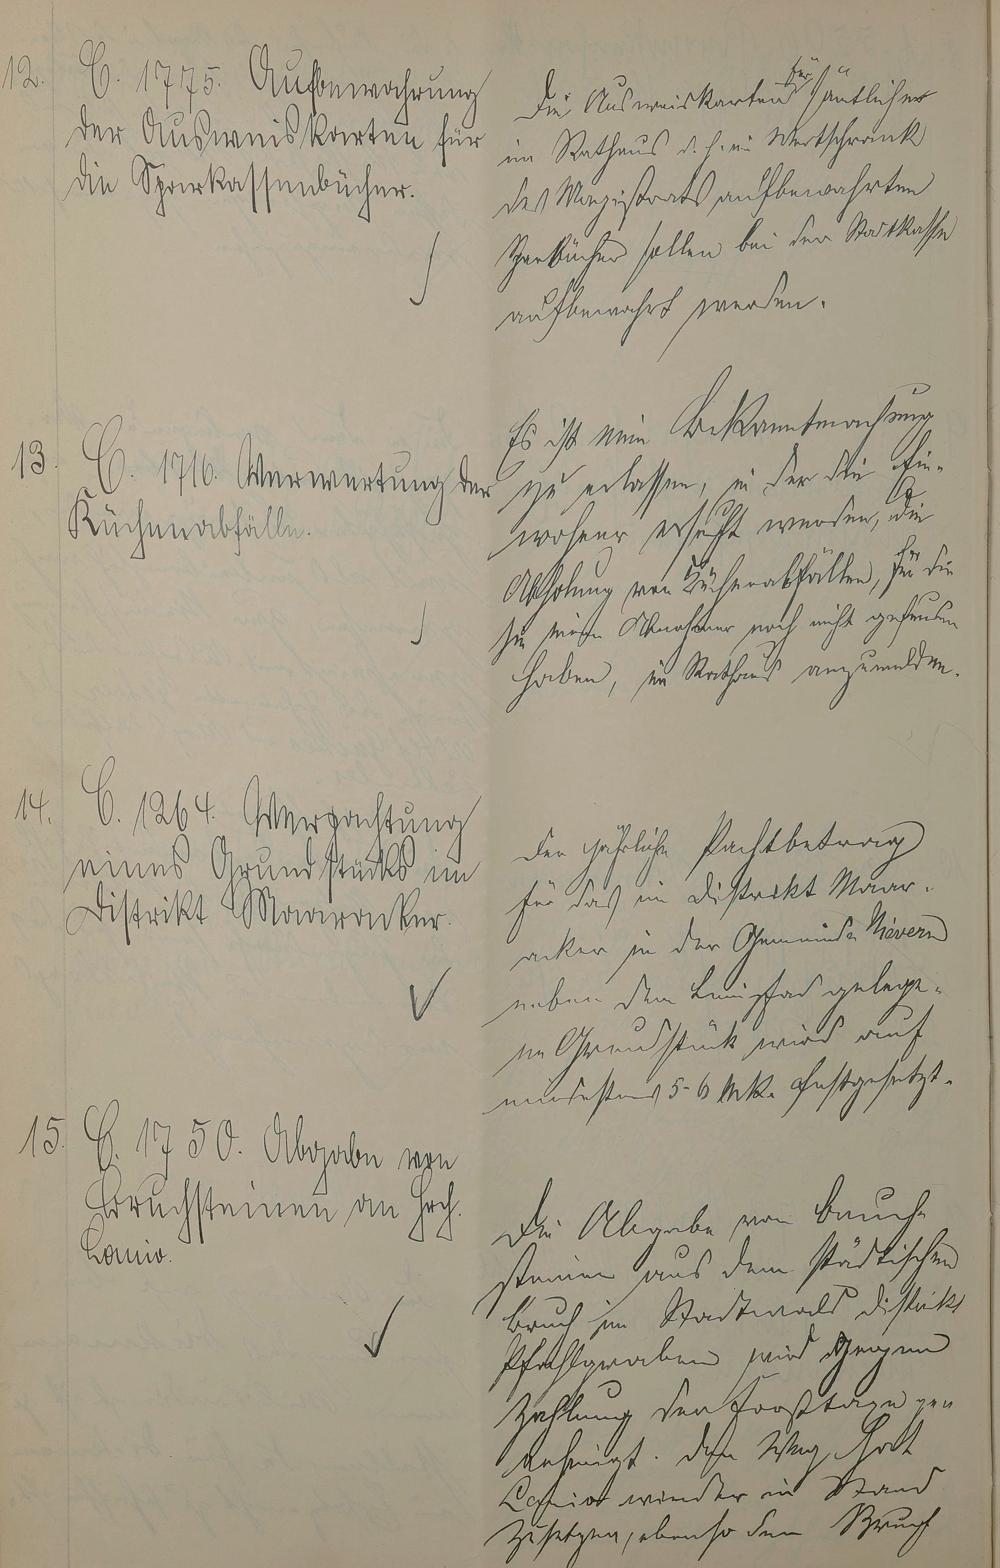 12. C. 1775. Aufbewahrung
der Ausweiskarten für
die Sparkassenbücher.
Die Ausweiskarten für sämtlicher
im Rathaus d. h. im Wertschrank
des Magistrats aufbewahrten
Sparbücher sollen bei der Stadtkasse
aufbewahrt werden.
13. C. 1716. Verwertung der
Küchenabfälle.
Es ist eine Bekanntmachung
zu erlassen, in der die Ein-
wohner ersucht werden, die
Abholung von Küchenabfällen, für die
sie einen Abnehmer noch nicht gefunden
haben, im Rathaus anzumelden.
14. C. 1264. Verpachtung
eines Grundstücks im
Distrikt Maaracker.
Der jährliche Pachtbetrag
für das im Distrikt Maar-
acker in der Gemeinde Nievern
neben dem Leinpfad gelege-
ne Grundstück wird auf
mindestens 5-6 Mk. festgesetzt.
15. C. 1750. Abgabe von
Bruchsteinen an Hch.
Lanio.
Die Abgabe von Bruch-
steinen aus dem städtischen
Bruch im Stadtwald Distrikt
Pfahlgraben wird gegen
Zahlung der Forsttaxe ge-
nehmigt. Den Weg hat
Lanio wieder in Stand
zu setzen, ebenso den Bruch